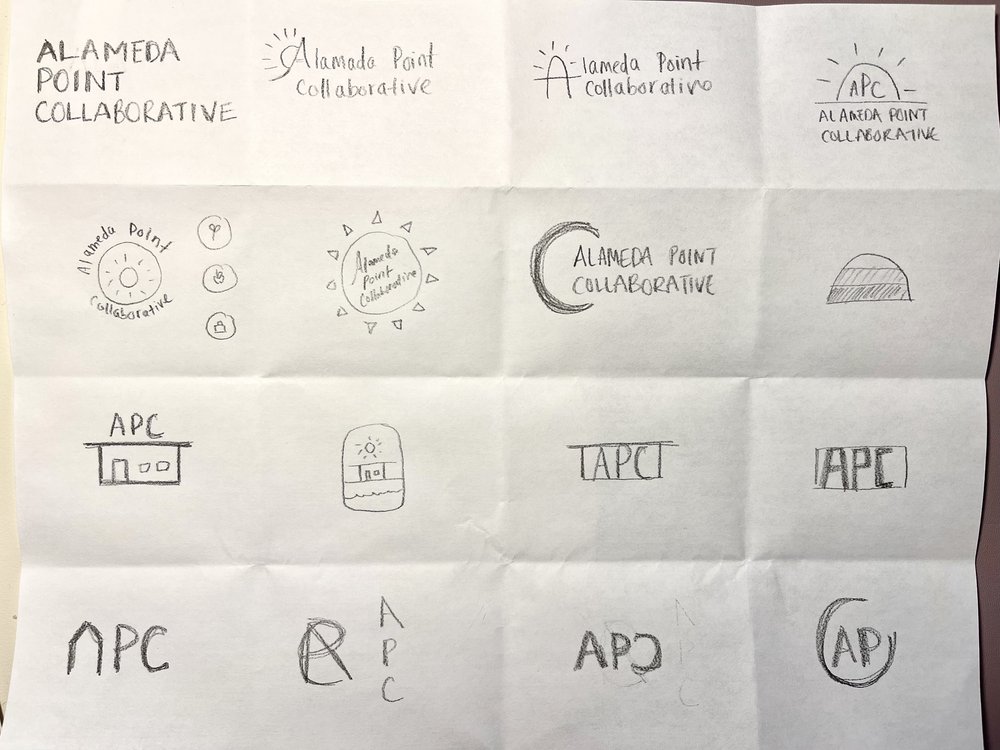 ALAMEDA
POINT
COLLABORATIVE
Alamada Point
Collaborative
Alameda Point
Collaborative
APC
ALAMEDA POINT
COLLABORATIVE
Alameda Point
Collaborative
Alameda
Point
Collaborative
ALAMEDA POINT
COLLABORATIVE
APC
APC
APC
APC
A
P
C
APC
AP